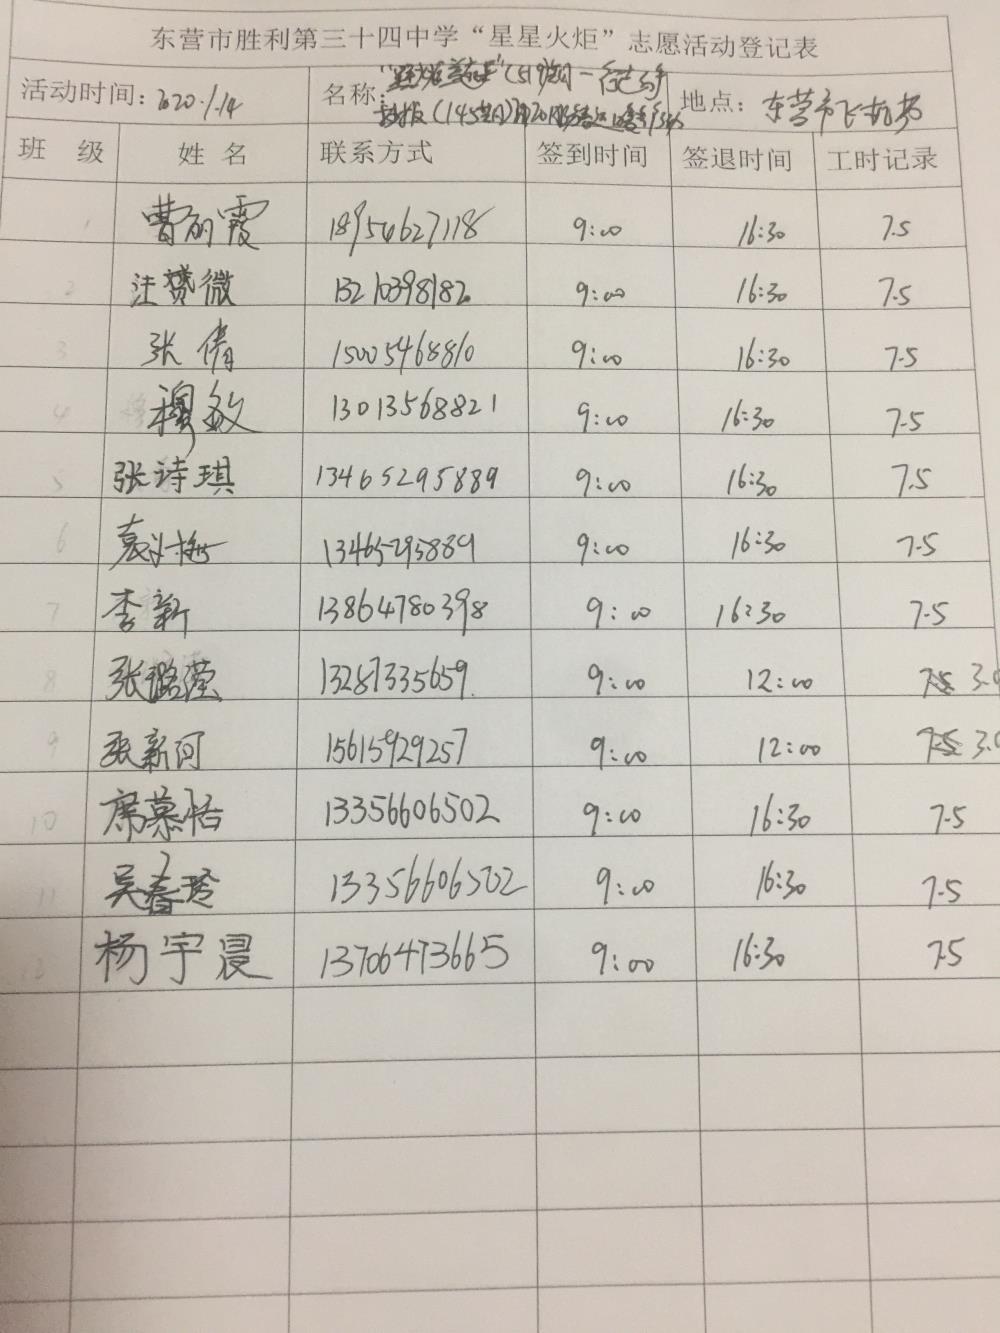 东营市胜利第三十四中学“星星火炬”志愿活动登记表
活动时间：2020.1.14 名称： 地点：东营市飞机场
班 级 姓 名 联系方式 签到时间 签退时间 工时记录
1 曹丽霞 18954627118 9:00 16:30 7.5
2 汪赟微 13210398182 9:00 16:30 7.5
3 张倩 15005468810 9:00 16:30 7.5
4 穆敏 13013568821 9:00 16:30 7.5
5 张诗琪 13465295889 9:00 16:30 7.5
6 袁 梅 13465295889 9:00 16:30 7.5
7 李新 13864780398 9:00 16:30 7.5
8 张璐滢 13287335659 9:00 12:00 3.0
9 张新河 15615929257 9:00 12:00 3.0
10 席慕恬 13356606502 9:00 16:30 7.5
11 吴春玲 13356606502 9:00 16:30 7.5
12 杨宇晨 13706473665 9:00 16:30 7.5